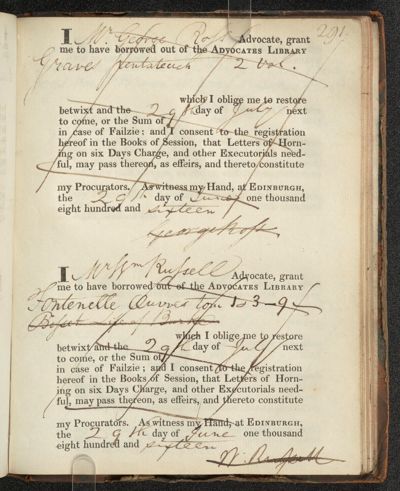 291.
I Mr George Ross Advocate, grant
me to have borrowed out of the ADVOCATES LIBRARY
Graves Pentateuch 2 Vol.
which I oblige me to restore
betwixt and the 29th day of July next
to come, or the Sum of
in case of Failzie: and I consent to the registration
hereof in the Books of Session, that Letters of Horn-
ing on six Days Charge, and other Executorials need-
ful, may pass thereon, as effeirs, and thereto constitute
my Procurators. As witness my Hand, at EDINBURGH,
the 29th day of June one thousand
eight hundred and sixteen
George Ross
I Mr Wm Russell Advocate, grant
me to have borrowed out of the ADVOCATES LIBRARY
Fontenelle Œuvres tom 1 3-9
Life of Burke
which I oblige me to restore
betwixt and the 29th day of July next
to come, or the Sum of
in case of Failzie; and I consent to the registration
hereof in the Books of Session, that Letters of Horn-
ing on six Days Charge, and other Executorials need-
ful, may pass thereon, as effeirs, and thereto constitute
my Procurators. As witness my Hand, at EDINBURGH,
the 29th day of June one thousand
eight hundred and sixteen
W. Russell